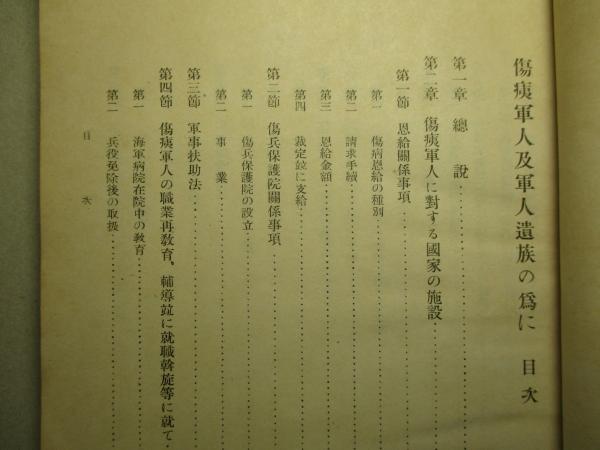 傷痍軍人及軍人遺族の爲に 目次
第一章 總說
第二章 傷痍軍人に對する國家の施設
第一節 恩給關係事項
第一 傷病恩給の種別
第二 請求手續
第三 恩給金額
第四 裁定竝に支給
第二節 傷兵保護院關係事項
第一 傷兵保護院の設立
第二 事業
第三節 軍事扶助法
第四節 傷痍軍人の職業再敎育、輔導竝に就職斡旋等に就て
第一 海軍病院在院中の敎育
第二 兵役免除後の取扱
目次